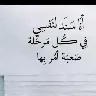 أنا سند لنفسي
في كل مرحلة
صعبة أمر بها